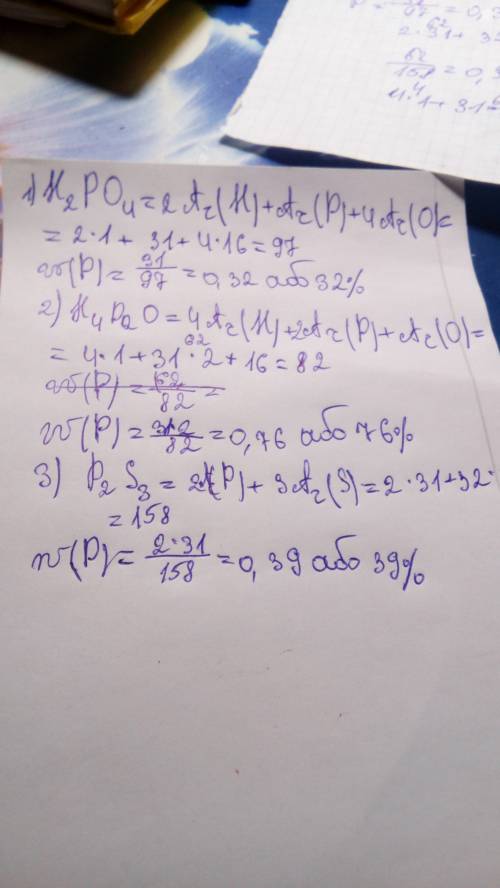 97 = 0,3
2·31 + 32
62
158 = 0,3
4·1 + 31
1) H2PO4 = 2Ar(H) + Ar(P) + 4Ar(O) =
= 2·1 + 31 + 4·16 = 97
w(P) = 31/97 = 0,32 або 32%
2) H4P2O = 4Ar(H) + 2Ar(P) + Ar(O) =
62
= 4·1 + 31·2 + 16 = 82
w(P) = 62/82 =
w(P) = 31·2/82 = 0,76 або 76%
3) P2S3 = 2Ar(P) + 3Ar(S) = 2·31 + 32·
= 158
w(P) = 2·31/158 = 0,39 або 39%